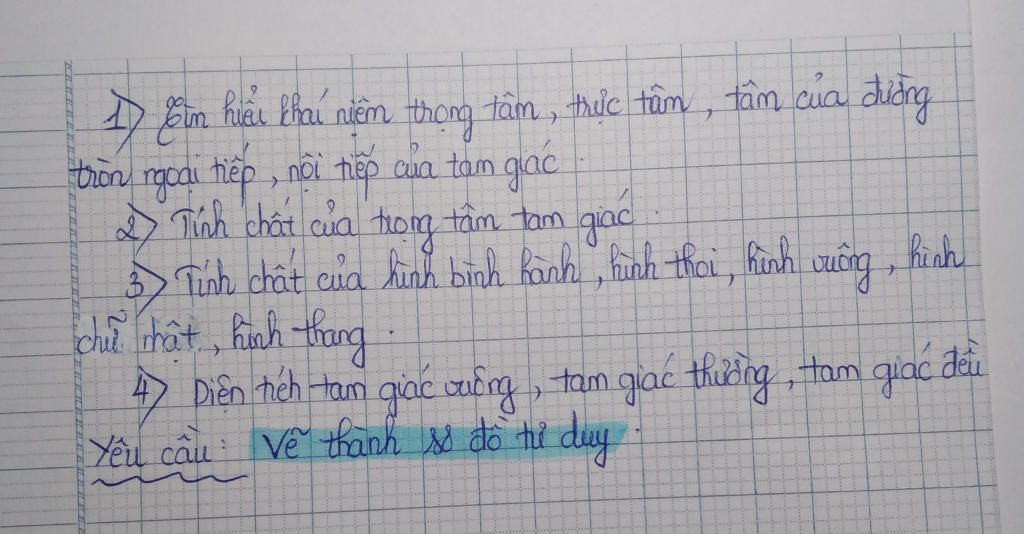 1) Tìm hiểu khái niệm trọng tâm, trực tâm, tâm của đường
tròn ngoại tiếp, nội tiếp của tam giác.
2) Tính chất của trọng tâm tam giác.
3) Tính chất của hình bình hành, hình thoi, hình vuông, hình
chữ nhật, hình thang.
4) Diện tích tam giác vuông, tam giác thường, tam giác đều
Yêu cầu: Vẽ thành sơ đồ tư duy.